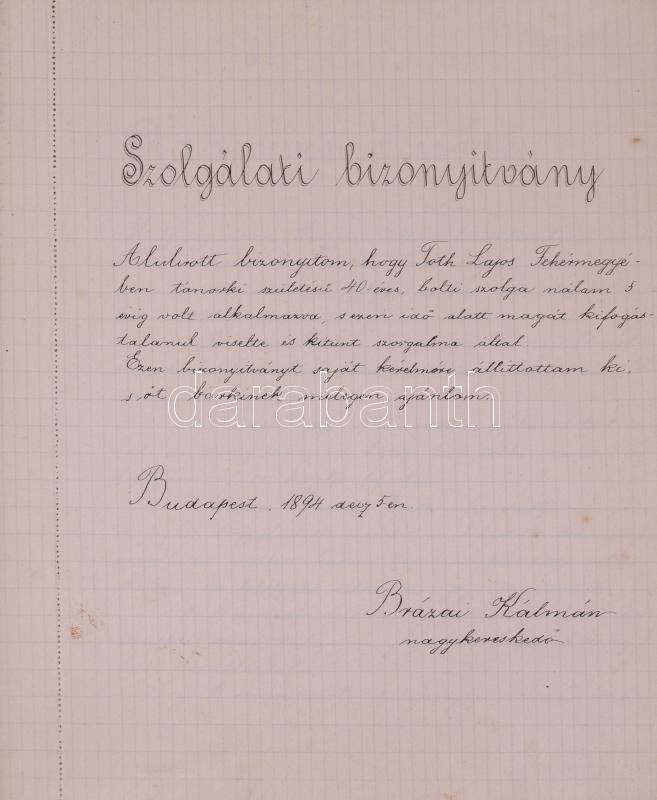 Szolgálati bizonyitvány
Alulirott bizonyitom, hogy Toth Lajos Fehérmegyé-
ben tánorki születésü 40-éves, bolti szolga nálam 5
évig volt alkalmazva, s ezen idő alatt magát kifogás-
talanul viselte és kitünt szorgalma által.
Ezen bizonyitványt saját kérelmére állittottam ki,
sőt bárkinek melegen ajánlom.
darabanth
Budapest, 1894 decz 5 én.
Brázai Kálmán
nagykereskedő